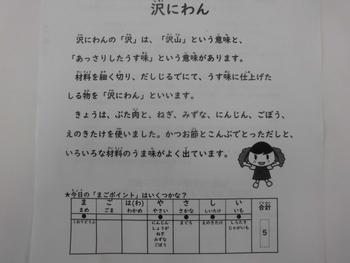 沢にわん
沢にわんの「沢」は、「沢山」という意味と、
「あっさりしたうす味」という意味があります。
材料を細く切り、だしじるでにて、うす味に仕上げた
しる物を「沢にわん」といいます。
きょうは、ぶた肉と、ねぎ、みずな、にんじん、ごぼう、
えのきたけを使いました。かつお節とこんぶでとっただしと、
いろいろな材料のうま味がよく出ています。
★今日の「まごポイント」はいくつかな？
ま ご は(わ) や さ し い 合計
まめ ごま わかめ やさい さかな しいたけ いも
● ● ● ● ●
にんじん まぐろ えのきたけ しらたき
しょうが じゃがいも
ねぎ
みずな
ごぼう
5